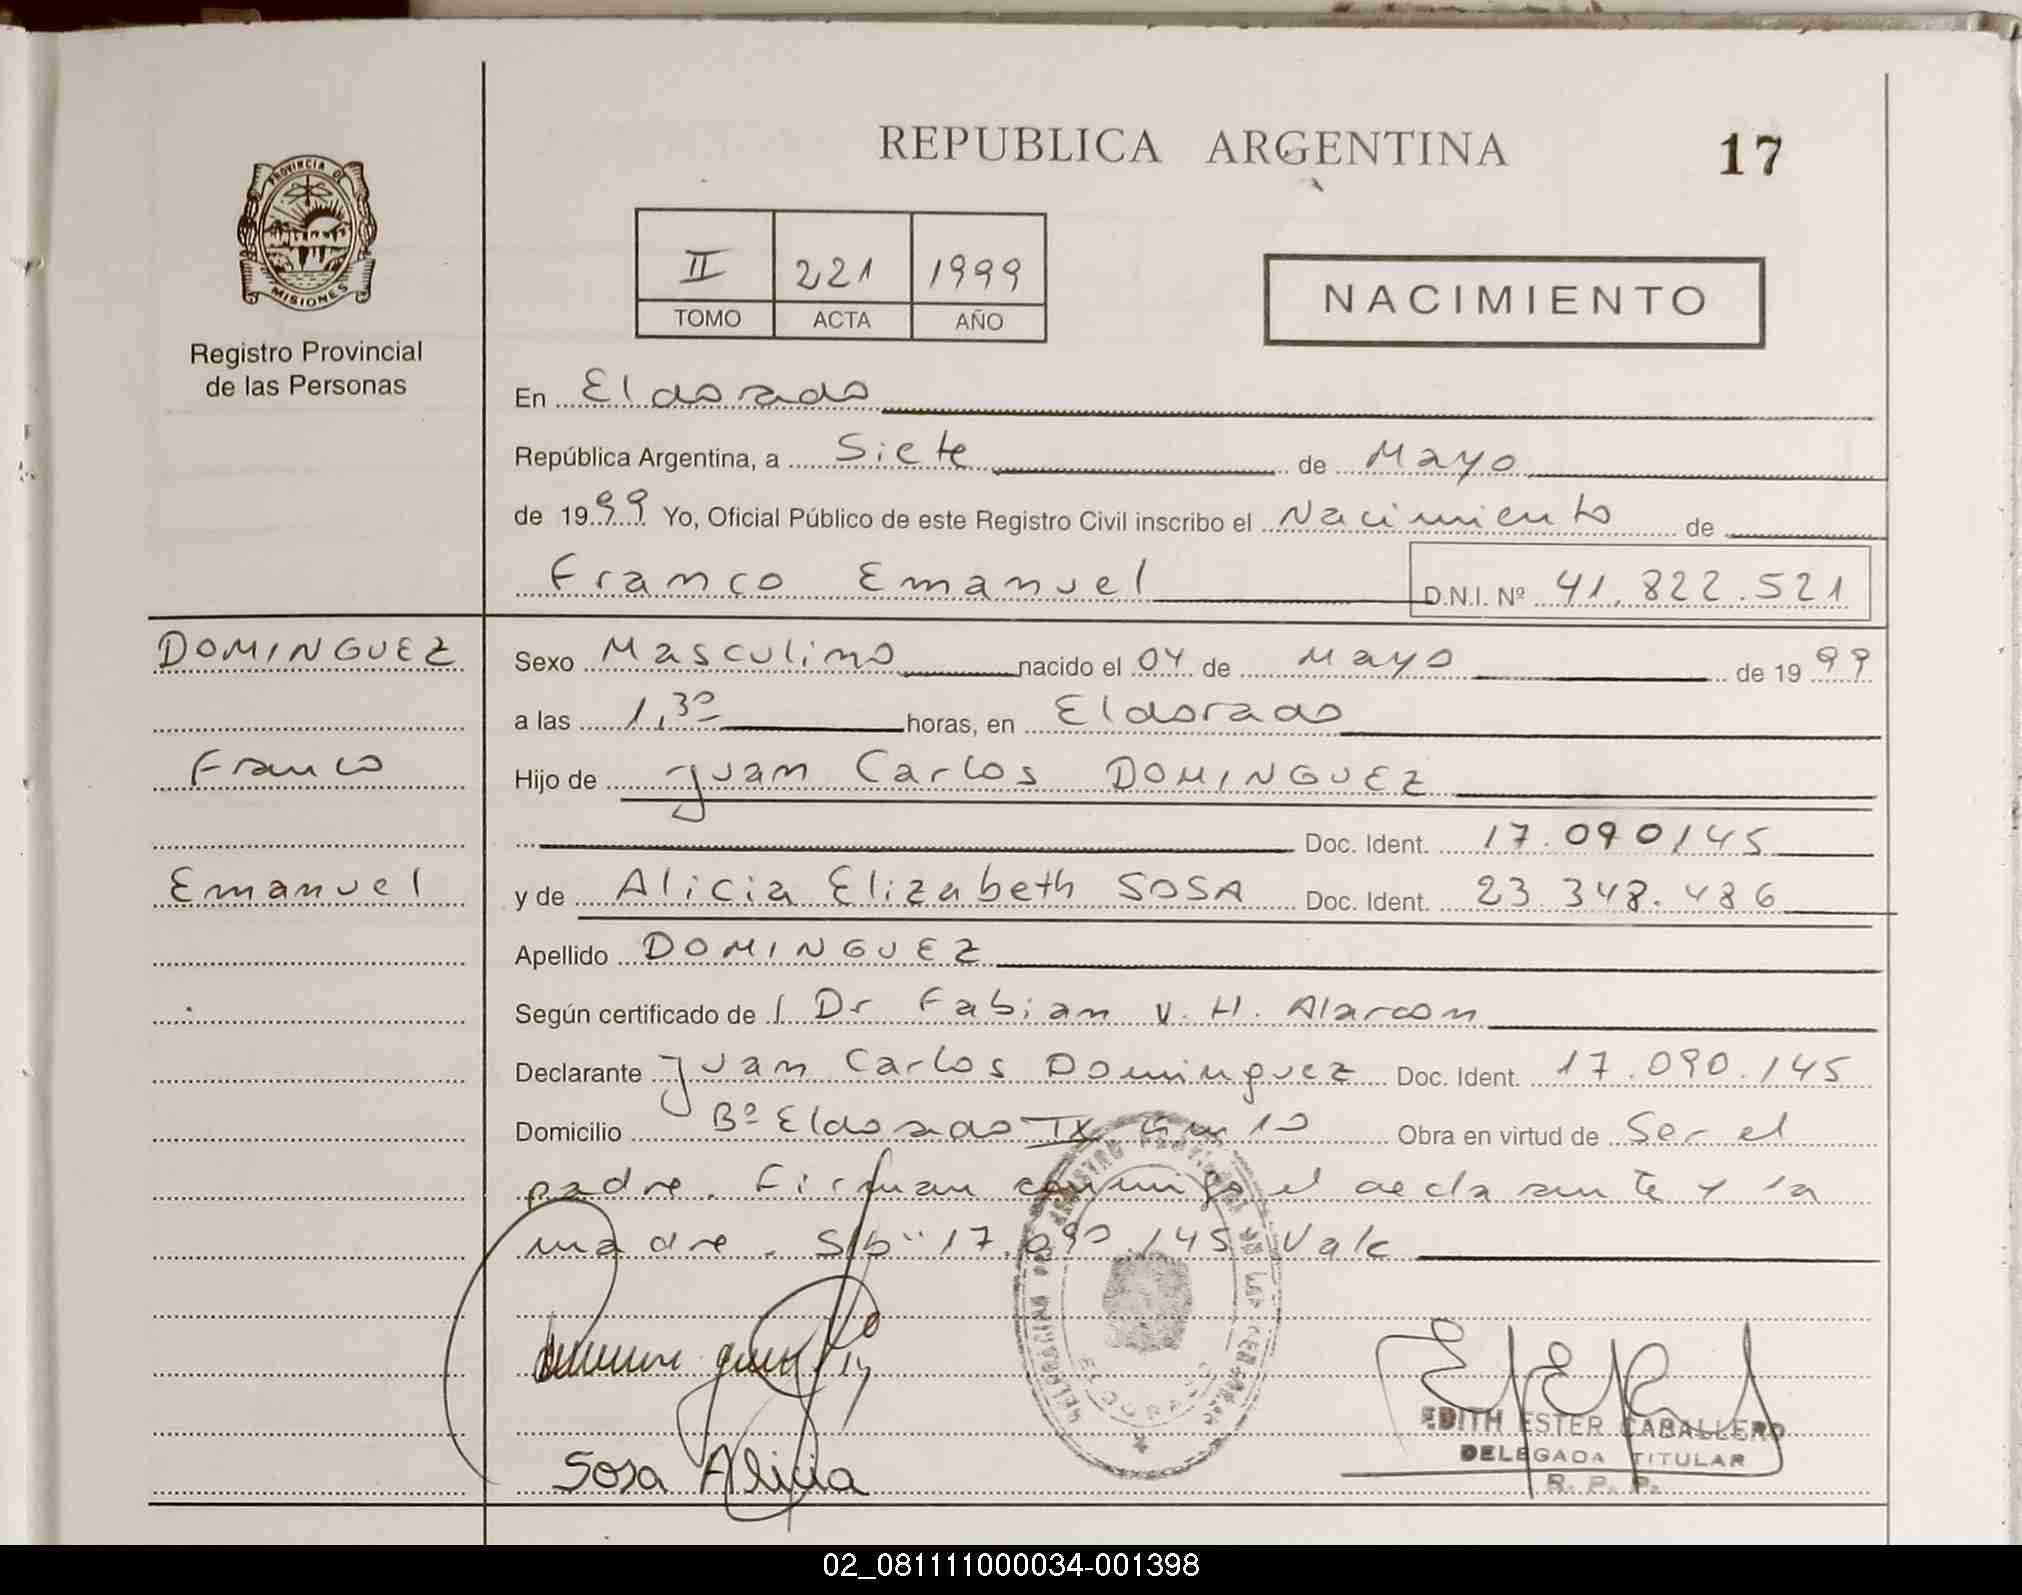 REPUBLICA ARGENTINA
17
PROVINCIA DE
MISIONES
Registro Provincial
de las Personas
II 221 1999
TOMO ACTA AÑO
NACIMIENTO
En Eldorado
República Argentina, a Siete de Mayo
de 1999 Yo, Oficial Público de este Registro Civil inscribo el Nacimiento de
Franco Emanuel D.N.I. Nº 41.822.521
DOMINGUEZ
Franco
Emanuel
Sexo Masculino nacido el 04 de Mayo de 1999
a las 1,30 horas, en Eldorado
Hijo de Juan Carlos DOMINGUEZ
Doc. Ident. 17.090145
y de Alicia Elizabeth SOSA Doc. Ident. 23.348.486
Apellido DOMINGUEZ
Según certificado de l Dr Fabian V. H. Alarcon
Declarante Juan Carlos Dominguez Doc. Ident. 17.090.145
Domicilio Bº Eldorado IX Km 10 Obra en virtud de Ser el
padre. Firman conmigo el declarante y la
madre. S/b "17.090.145 Vale
Sosa Alicia
ELDORADO
EDITH ESTER CABALLERO
DELEGADA TITULAR
R. P. P.
02_081111000034-001398